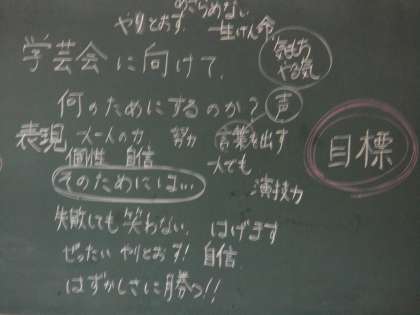 あきらめない
やりとおす. 一生けん命
気もち
やる気
学芸会に向けて.
何のためにするのか? 声
表現 大一人の力 努力 言葉を出す
個性 自信 大でも
そのためには… 演技力
目標
失敗しても笑わない. はげます
ぜったい やりとおす! 自信
はずかしさに勝つ!!